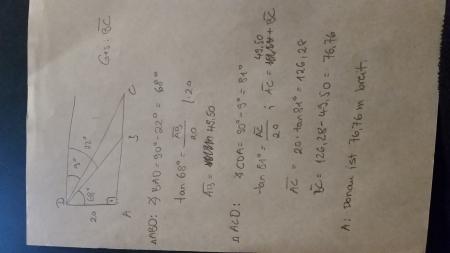 Ges: BC
D
9°
22°
68°
20
A
B
C
△ABD: ∢ BAD = 90° - 22° = 68°
tan 68° = AB / 20 | · 20
AB = 49.50
△ ACD: ∢ CDA = 90° - 9° = 81°
tan 81° = AC / 20 ; AC = 49.50 + BC
AC 20 · tan 81° = 126,28
BC = 126,28 - 49,50 = 76,76
A: Donau ist 76,76 m breit.